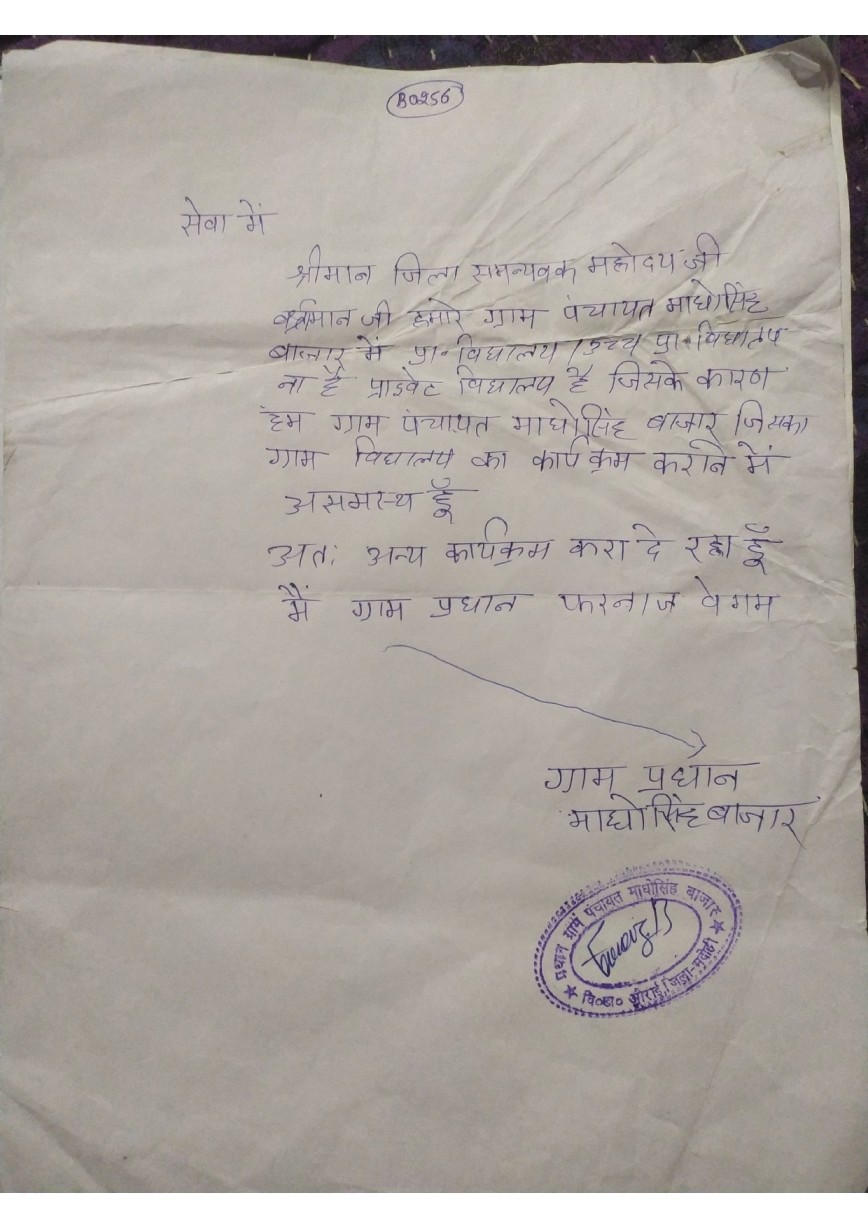 B0256
सेवा में
श्रीमान जिला समन्यवक महोदय जी
वर्तमान जी हमारे ग्राम पंचायत माधोसिंह
बाजार में प्रा॰ विद्यालय / उच्च प्रा॰ विद्यालय
ना है प्राइवेट विद्यालय है जिसके कारण
हम ग्राम पंचायत माधोसिंह बाजार जिसका
ग्राम विद्यालय का कार्यक्रम कराने में
असमस्थ हूँ
अतः अन्य कार्यक्रम करा दे रहा हूँ
मैं ग्राम प्रधान फरनाज वेगम
ग्राम प्रधान
माधोसिंह बाजार
प्रधान ग्राम पंचायत माधोसिंह बाजार
वि०ख० औराई, जिला-भदोही